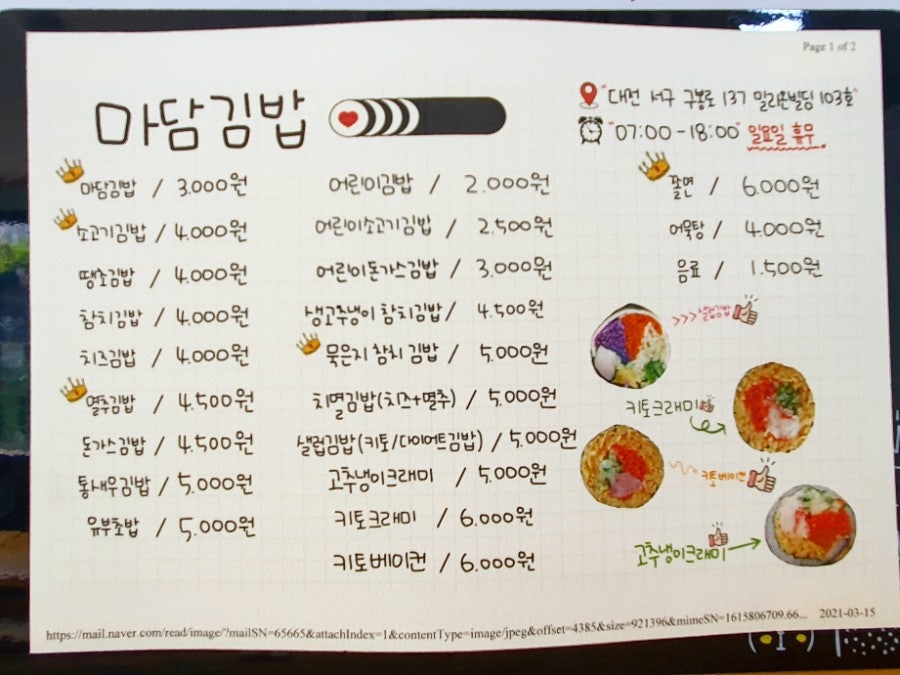 Page 1 of 2
마담김밥
"대전 서구 구봉로 137 밀라운빌딩 103호"
"07:00 -18:00" 일요일 휴무
마담김밥 / 3.000원
소고기김밥 / 4.000원
땡초김밥 / 4.000원
참치김밥 / 4.000원
치즈김밥 / 4.000원
멸추김밥 / 4.500원
돈가스김밥 / 4.500원
통새우김밥 / 5.000원
유부초밥 / 5.000원
어린이김밥 / 2.000원
어린이소고기김밥 / 2.500원
어린이돈가스김밥 / 3.000원
생고추냉이 참치김밥 / 4.500원
묵은지 참치 김밥 / 5.000원
치멸김밥(치즈+멸추) / 5.000원
샐럽김밥(키토/다이어트김밥) / 5.000원
고추냉이크래미 / 5.000원
키토크래미 / 6.000원
키토베이컨 / 6.000원
쫄면 / 6.000원
어묵탕 / 4.000원
음료 / 1.500원
>>>샐럽김밥
키토크래미
키토베이컨
고추냉이크래미
https://mail.naver.com/read/image/?mailSN=65665&attachIndex=1&contentType=image/jpeg&offset=4385&size=921396&mimeSN=1615806709.66... 2021-03-15